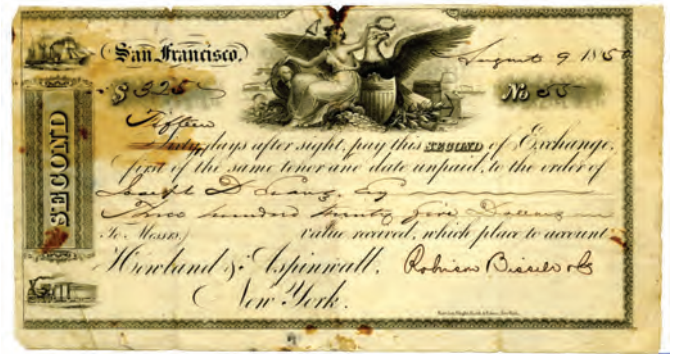 San Francisco, August 9 1850
$ 325 No 55
Fifteen
Sixty days after sight, pay this SECOND of Exchange,
first of the same tenor and date unpaid, to the order of
Joseph D Esq
Three hundred twenty five Dollars
To Messrs. value received, which place to account
Howland & Aspinwall, Robinson Bissell & Co
New York.
SECOND